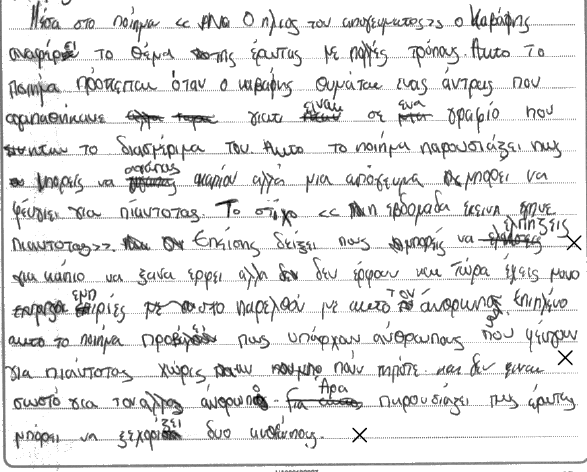 Μέσα στο ποίημα << Ο ήλιος του απογεύματος>> ο Καβάφης
αναφέρει το θέμα της έρωτας με πολλές τρόπους. Αυτο το
ποιήμα πρόπεπαι όταν ο καβάφης θυμάται ενας άντρας που
αγαπαθήκανε γιατι είναι σε ενα γραφίο που
το διασμέριμα του. Αυτο το ποίημα παρουσιάζει πως
μπορείς να αγαπας καποιον αλλα μια απόγευμα μπορει να
φευγιει για πιαντοτας. Το στίχο << η εβδομαδα εκεινη εγινε
παντοτας>>. Επίσης δείξει πως μπορείς να ελπηξεις
για κάπιο να ξανα ερρει αλλη δεν έρφουν και τώρα έχεις μονο
στο παρελθόν με αυτο τον άνθρωπος επιπλένο
αυτο το ποίημα προβάλει πως υπάρχουν άνθρωπους που φευγουν
για πιαντοτας χώρις να πουν τιποτε και δεν ειναι
σωστό για τον αλλος ανθρωπο. Άρα παρουσιάζει πως έρωτας
μπόρει να ξεχορίζει δυο ανθώπους.